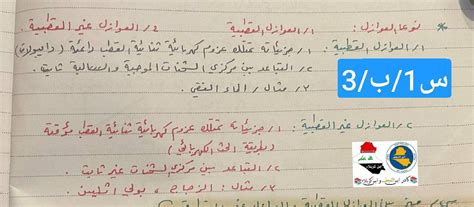 نوعا العوازل: ١/ العوازل القطبية ٢/ العوازل غير القطبية.
١/ العوازل القطبية: ١/ جزيئاته تمتلك عزوم كهربائية ثنائية القطب دائمة (دايبولات)
٢/ التباعد بين مركزي الشحنات الموجبة والسالبة ثابت.
٣/ مثال/ الماء النقي.
س1/ب/3
٢/ العوازل غير القطبية: ١/ جزيئاته تمتلك عزوم كهربائية ثنائية القطب مؤقتة
(بطريقة الحث الكهربائي)
٢/ التباعد بين مركزي الشحنات غير ثابت.
٣/ مثال: الزجاج، بولي اثلين.
العوازل القطبية